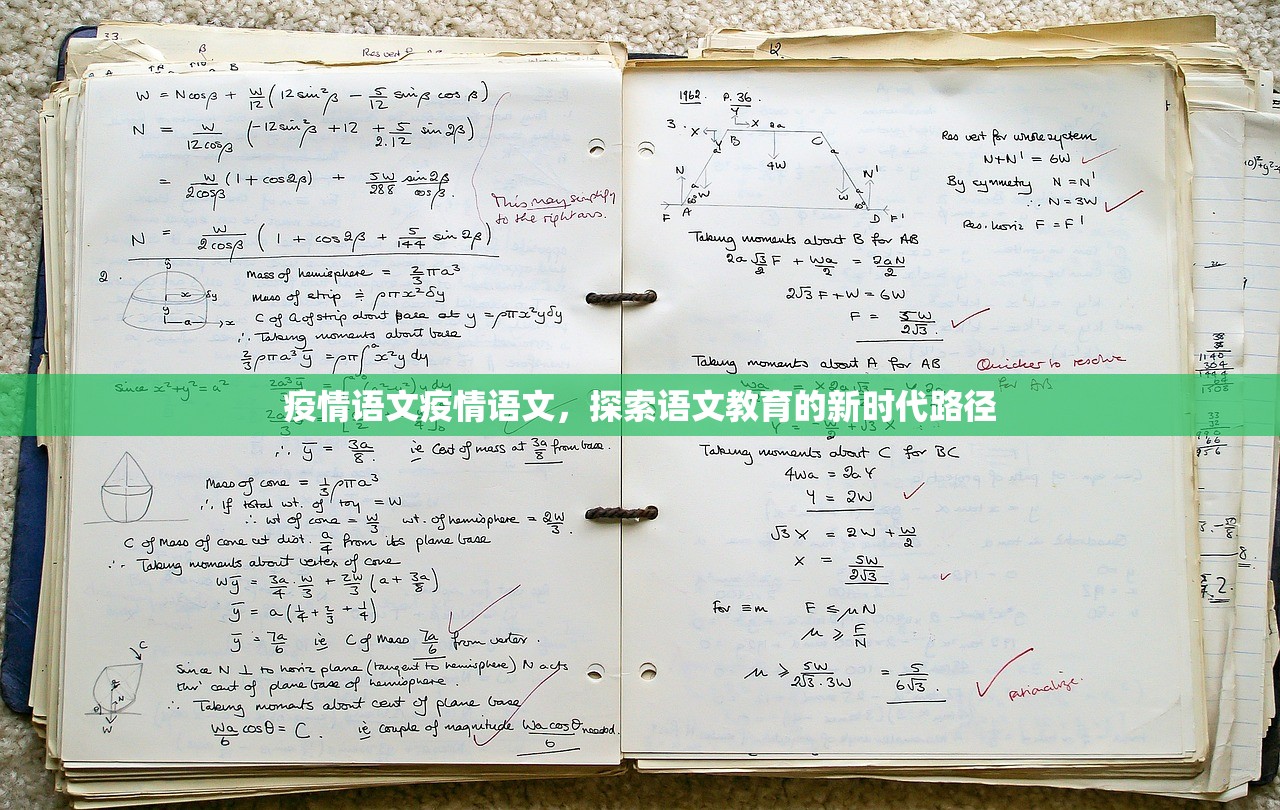 33.
Res vert
β
B
W = N cos β + W/12 (12 sin²β − 5/12 sin β cos β)
N = W/12cosβ (−12 sin²β + 12 + 5/2.12 sin 2β)
= W/2cosβ (1 + cos 2β) + 5W/288 sin2β/cosβ.
This may simplify
to the right ans.
N = W/2cosβ (1 + cos 2β + 5/144 sin 2β)
2.
Mass of hemisphere = 2/3 πa³
Mass of strip ≑ ρπx²δy
C of G of strip about base at y = ρπx²yδy
∴ Taking moments about base
2/3 ρπa³ ȳ = ρπ∫ x²y dy
Since x²+y² = a²
疫情语文疫情语文，探索语文教育的新时代路径
∴ ȳ = 3a/8 ie Cent of mass at 3a/8 from base.
Mass of cone = 1/3 ρπa³
∴ If total wt. of toy = W
∴ wt of cone = W/3 wt. of hemisphere = 2W/3.
C of Mass of cone at dist. a/4 from its plane base
∴ Taking moments about vertex of cone
Wȳ = 3a/4 . W/3 + 2W/3 (a + 3a/8)
ȳ = a(1/4 + 2/3 + 1/4)
ȳ = 7a/6 ie C of Mass 7a/6 from vertex.
C
Since N ⊥ to horiz plane (tangent to hemisphere) N acts
thro' cent of plane base of hemisphere.
∴ Taking moments about cent of plane base
Wa/6 cosθ = C. ie couple of magnitude Wa cosθ/6 needed.
N
θ
W
12
1962. P. 36.
3.
X
Y
X
2a
B
C
4W
N
N'
W
W
60°
60°
F
A
D
F'
Res vert for whole system
N+N' = 6W
By symmetry N = N'
∴ N = 3W
Res. horiz F = F'
Taking moments about B for AB
2a √3/2 F + Wa/2 = 2aN/2
2√3 F + W = 6W
F = 5W/2√3.
Taking moments about A for AB
Quicker to resolve
for AB
Taking moments about C for BC
4Wa = 2aY
Y = 2W
√3 X = 2W + W/2
X = 5W/2√3
For ≡m F ≤ μN
μ ≥ F/N
μ ≥ 5W/2√3.3W = 5/6√3.
rationalize.